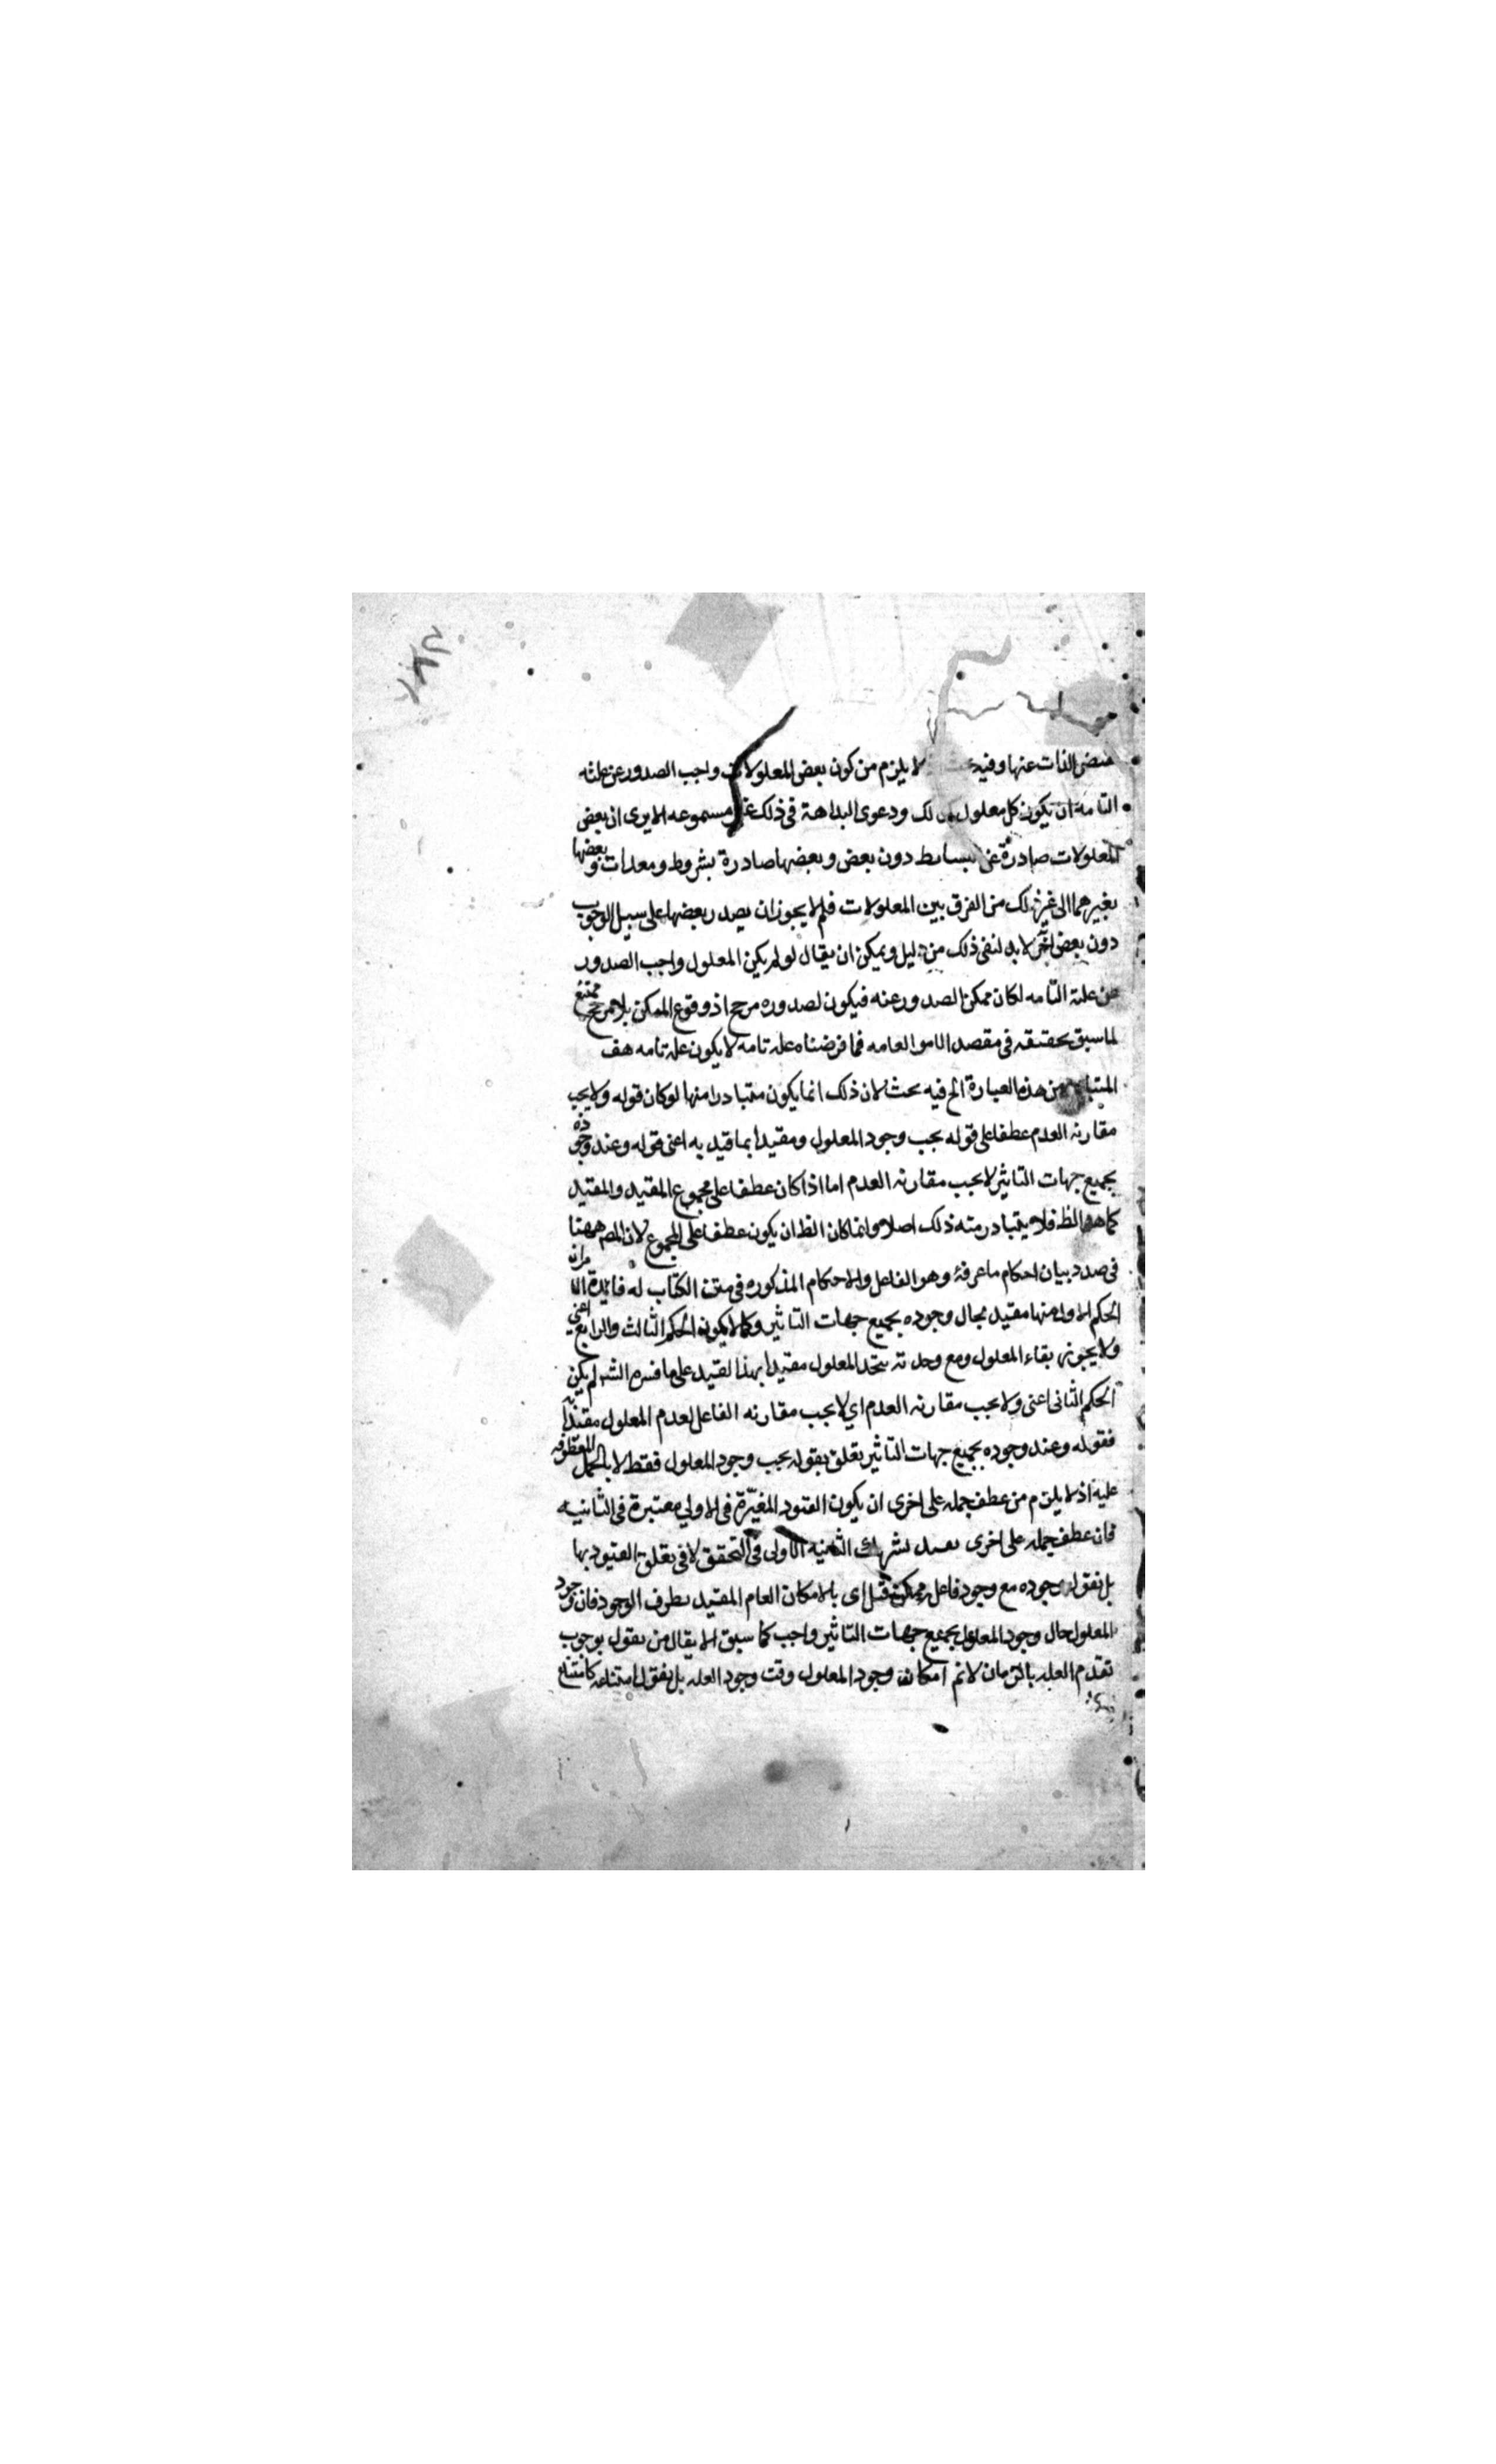 الذات عنها وفيه لا يلزم من كون بعض المعلولات واجب الصدور عن علته
التامة ان يكون كل معلول كذلك ودعوى البداهة فى ذلك غير مسموعه الا يرى ان بعض
المعلولات صادرة عن بسايط دون بعض وبعضها صادرة بشروط ومعدات وبعضها
بغيرهما الى غير ذلك من الفرق بين المعلولات فلم لا يجوز ان يصدر بعضها على سبيل الوجوب
دون بعض اخر لا بد لنفى ذلك من دليل ويمكن ان يقال لو لم يكن المعلول واجب الصدور
عن علته التامه لكان ممكن الصدور عنه فيكون لصدوره مرجح اذ وقوع الممكن بلا مرجح ممتنع
لما سبق تحقيقه فى مقصد الامور العامه فما فرضناه علة تامه لا يكون علة تامه هف
المتبادر من هذه العبارة الخ فيه بحث لان ذلك انما يكون متبادرا منها لو كان قوله ولا يجب
مقارنه العدم عطفا على قوله يجب وجود المعلول ومقيدا بما قيد به اعنى قوله وعند وجوده
بجميع جهات التاثير لا يجب مقارنه العدم اما اذا كان عطفا على مجموع المقيد والمقيد
كما هو الظ فلا يتبادر منه ذلك اصلا وانما كان الظ ان يكون عطفا على المجموع لان المص ههنا
فى صدد بيان احكام ما عرفه وهو الفاعل والاحكام المذكوره فى متن الكتاب له
الحكم الاول منها مقيد بحال وجوده بجميع جهات التاثير وكما لا يكون الحكم الثالث والرابع اعنى
ولا يجوز بقاء المعلول ومع وحدته يتحد المعلول مقيدا بهذا القيد على ما فسره الش لم يكن
الحكم الثانى اعنى ولا يجب مقارنه العدم اي لا يجب مقارنه الفاعل لعدم المعلول مقيدا به
فقوله وعند وجوده بجميع جهات التاثير يعلق بقوله يجب وجود المعلول فقط لا بالجمل المعطوفه
عليه اذ لا يلزم من عطف جمله على اخرى ان يكون القيود المغيرة فى الاولى معتبرة فى الثانيه
فان عطف جمله على اخرى يفيد تشريك الثانية الاولى فى التحقق لا فى تعلق القيود بها
بل نقول وجوده مع وجود فاعل ممكن قبل اى بالامكان العام المقيد بطرف الوجود فان وجود
المعلول حال وجود المعلول بجميع جهات التاثير واجب كما سبق الا يقال من يقول بوجوب
تقدم العله بالزمان لا نم امكان وجود المعلول وقت وجود العله بل نقول امتناعه كامتناع